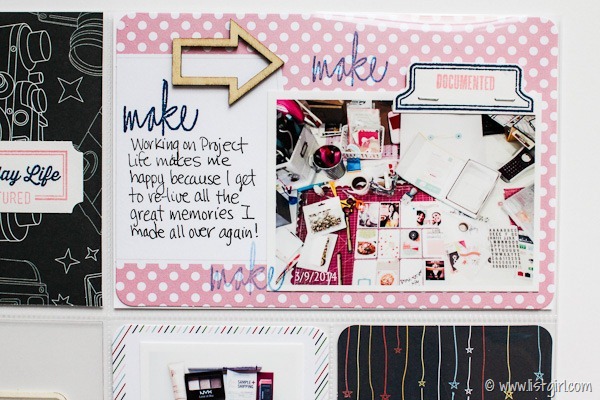 make
DOCUMENTED
make
Working on Project
Life makes me
happy because I get
to re-live all the
great memories I
made all over again!
make
3/9/2014
Life
NYX
© www.listgirl.com